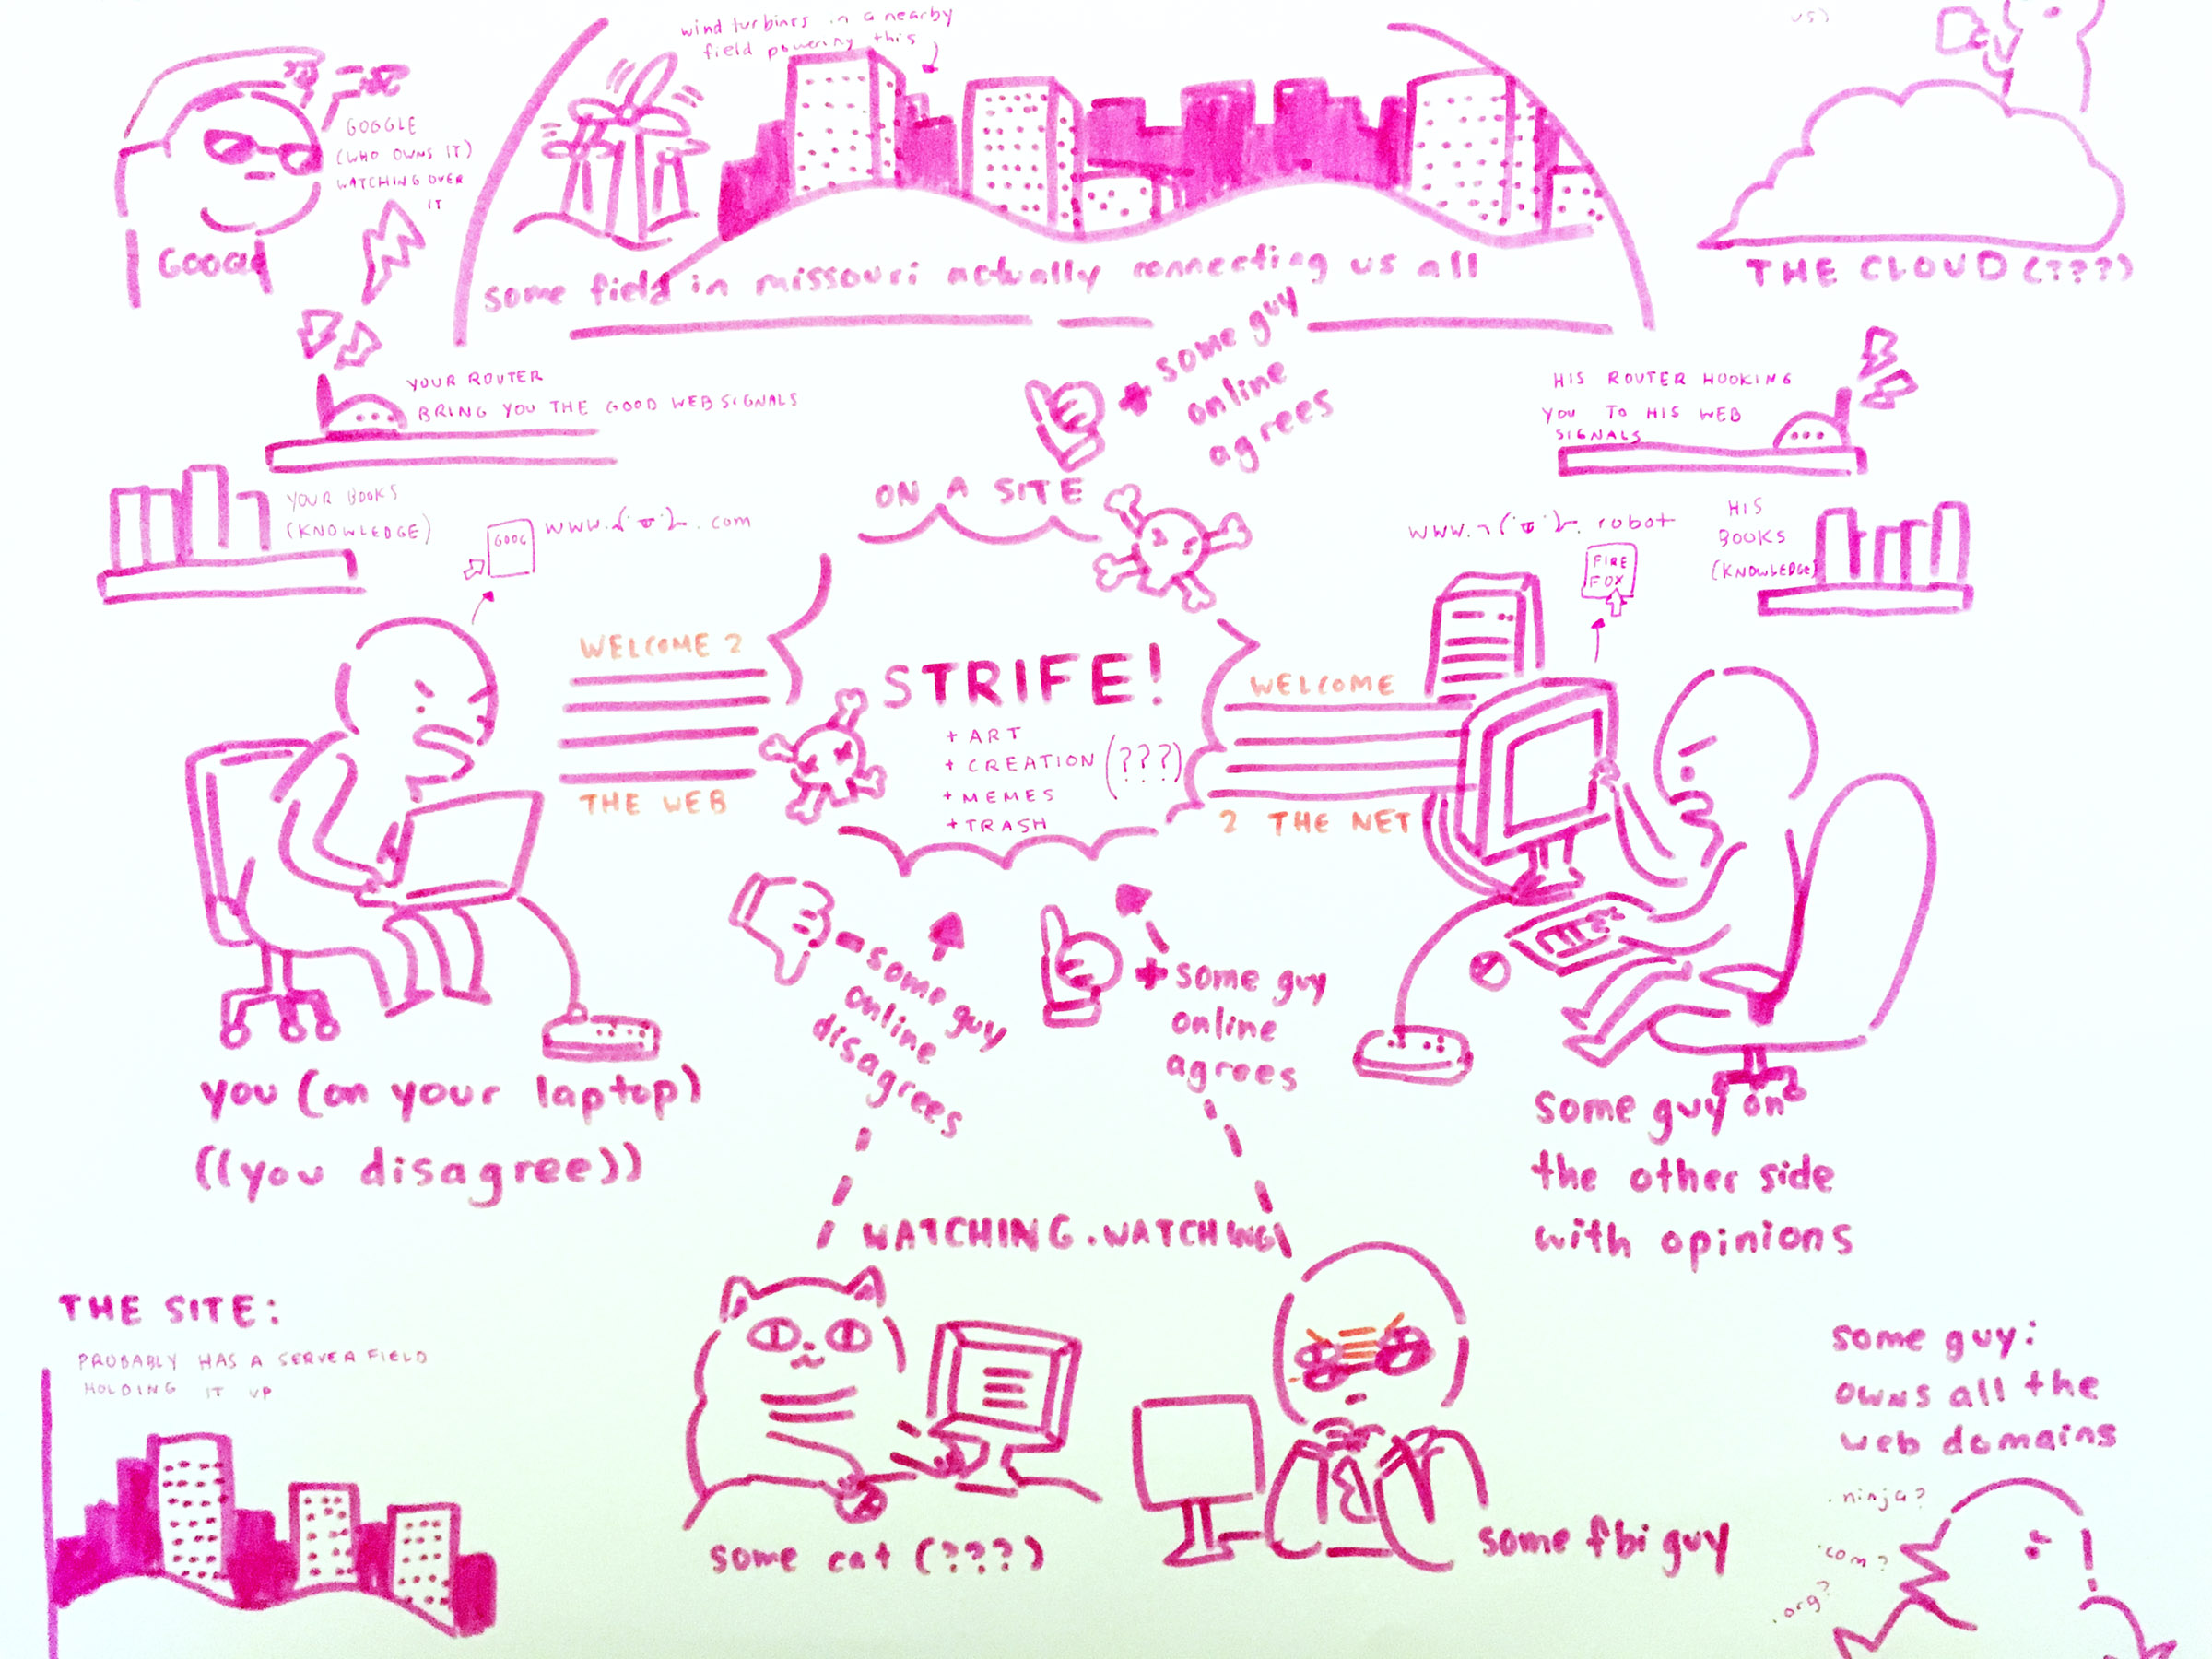 wind turbines in a nearby
field powering this
us)
GOGGLE
(WHO OWNS IT)
WATCHING OVER
IT
GOOGL
some field in missouri actually connecting us all
THE CLOUD (???)
YOUR ROUTER
BRING YOU THE GOOD WEB SIGNALS
+ some guy
online
agrees
HIS ROUTER HOOKING
YOU TO HIS WEB
SIGNALS
YOUR BOOKS
(KNOWLEDGE)
GOOG
.com
ON A SITE
robot
FIRE
FOX
HIS
BOOKS
(KNOWLEDGE)
WELCOME 2
THE WEB
STRIFE!
+ ART
+ CREATION (???)
+ MEMES
+ TRASH
WELCOME
2 THE NET
- some guy
online
disagrees
+ some guy
online
agrees
you (on your laptop)
((you disagree))
some guy on
the other side
with opinions
WATCHING.WATCHING
THE SITE:
PROBABLY HAS A SERVER FIELD
HOLDING IT UP
some cat (???)
some fbi guy
some guy:
owns all the
web domains
.ninja?
.com?
.org?